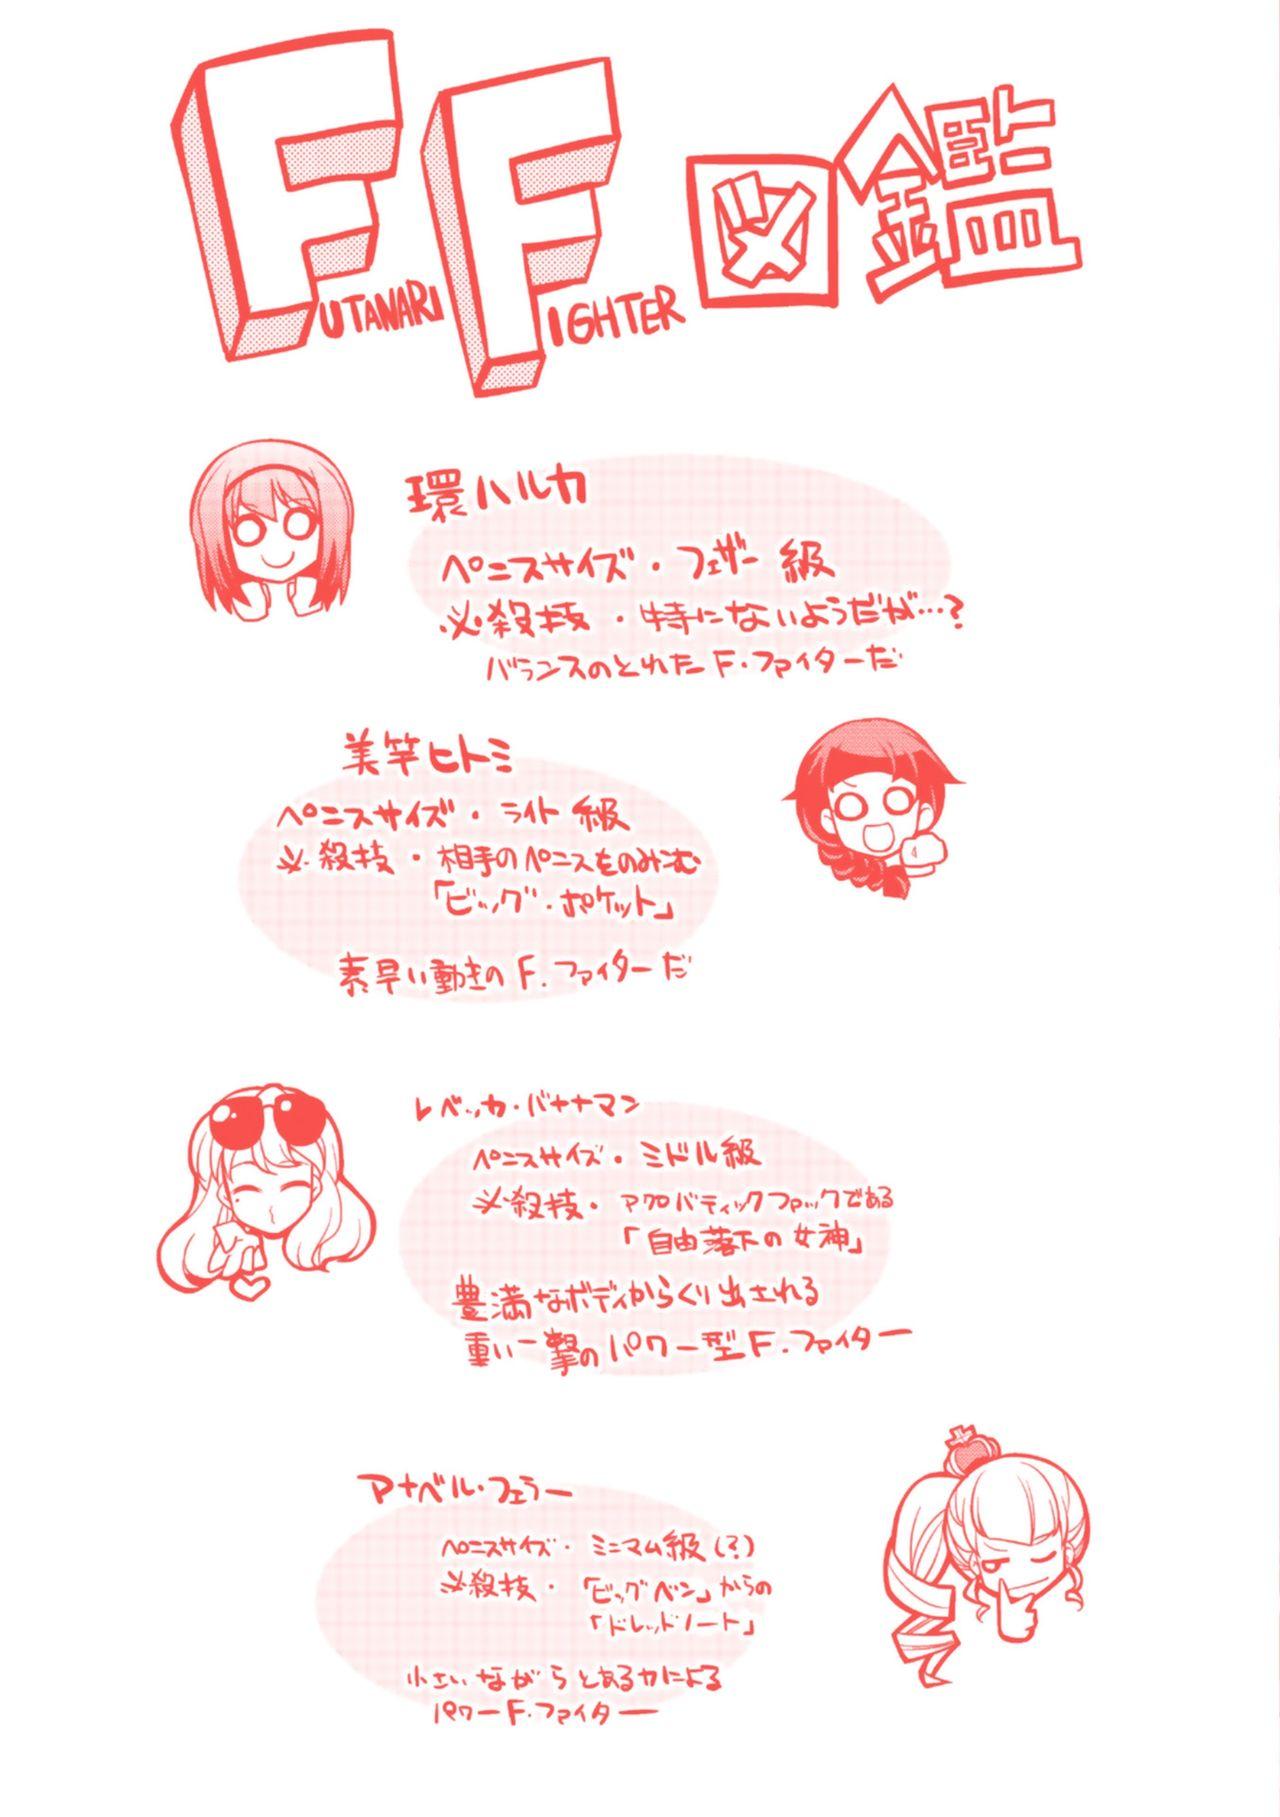 FUTANARI FIGHTER 図鑑
環ハルカ
ペニスサイズ・フェザー級
必殺技・特にないようだが…?
バランスのとれた F.ファイターだ
美竿ヒトミ
ペニスサイズ・ライト級
必殺技・相手のペニスをのみこむ
「ビッグ・ポケット」
素早い動きの F.ファイターだ
レベッカ・バナナマン
ペニスサイズ・ミドル級
必殺技・アクロバティックファックである
「自由落下の女神」
豊満なボディからくり出される
重い一撃のパワー型F.ファイター
アナベル・フェラー
ペニスサイズ・ミニマム級(?)
必殺技・「ビッグベン」からの
「ドレッドノート」
小さいながらとある力による
パワーF.ファイター